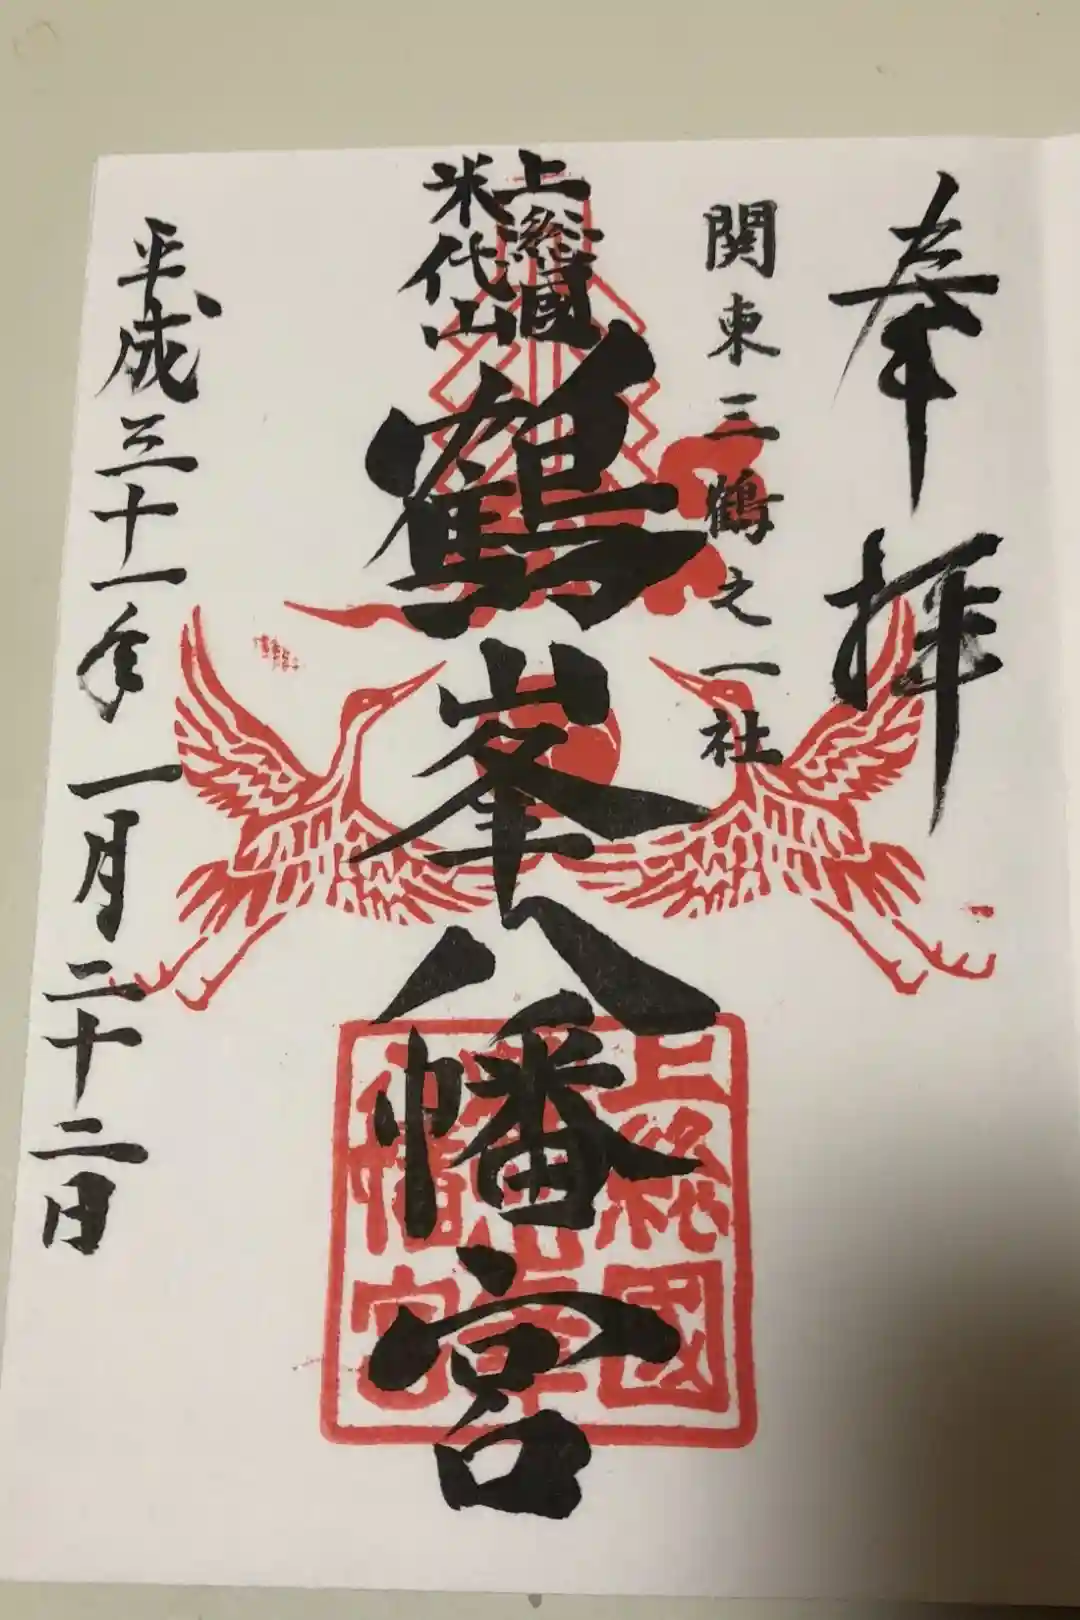 奉拝
関東三鶴之一社
上総國
米代山
鶴峯八幡宮
平成三十一年一月二十二日
上総國
鶴峯
八幡宮